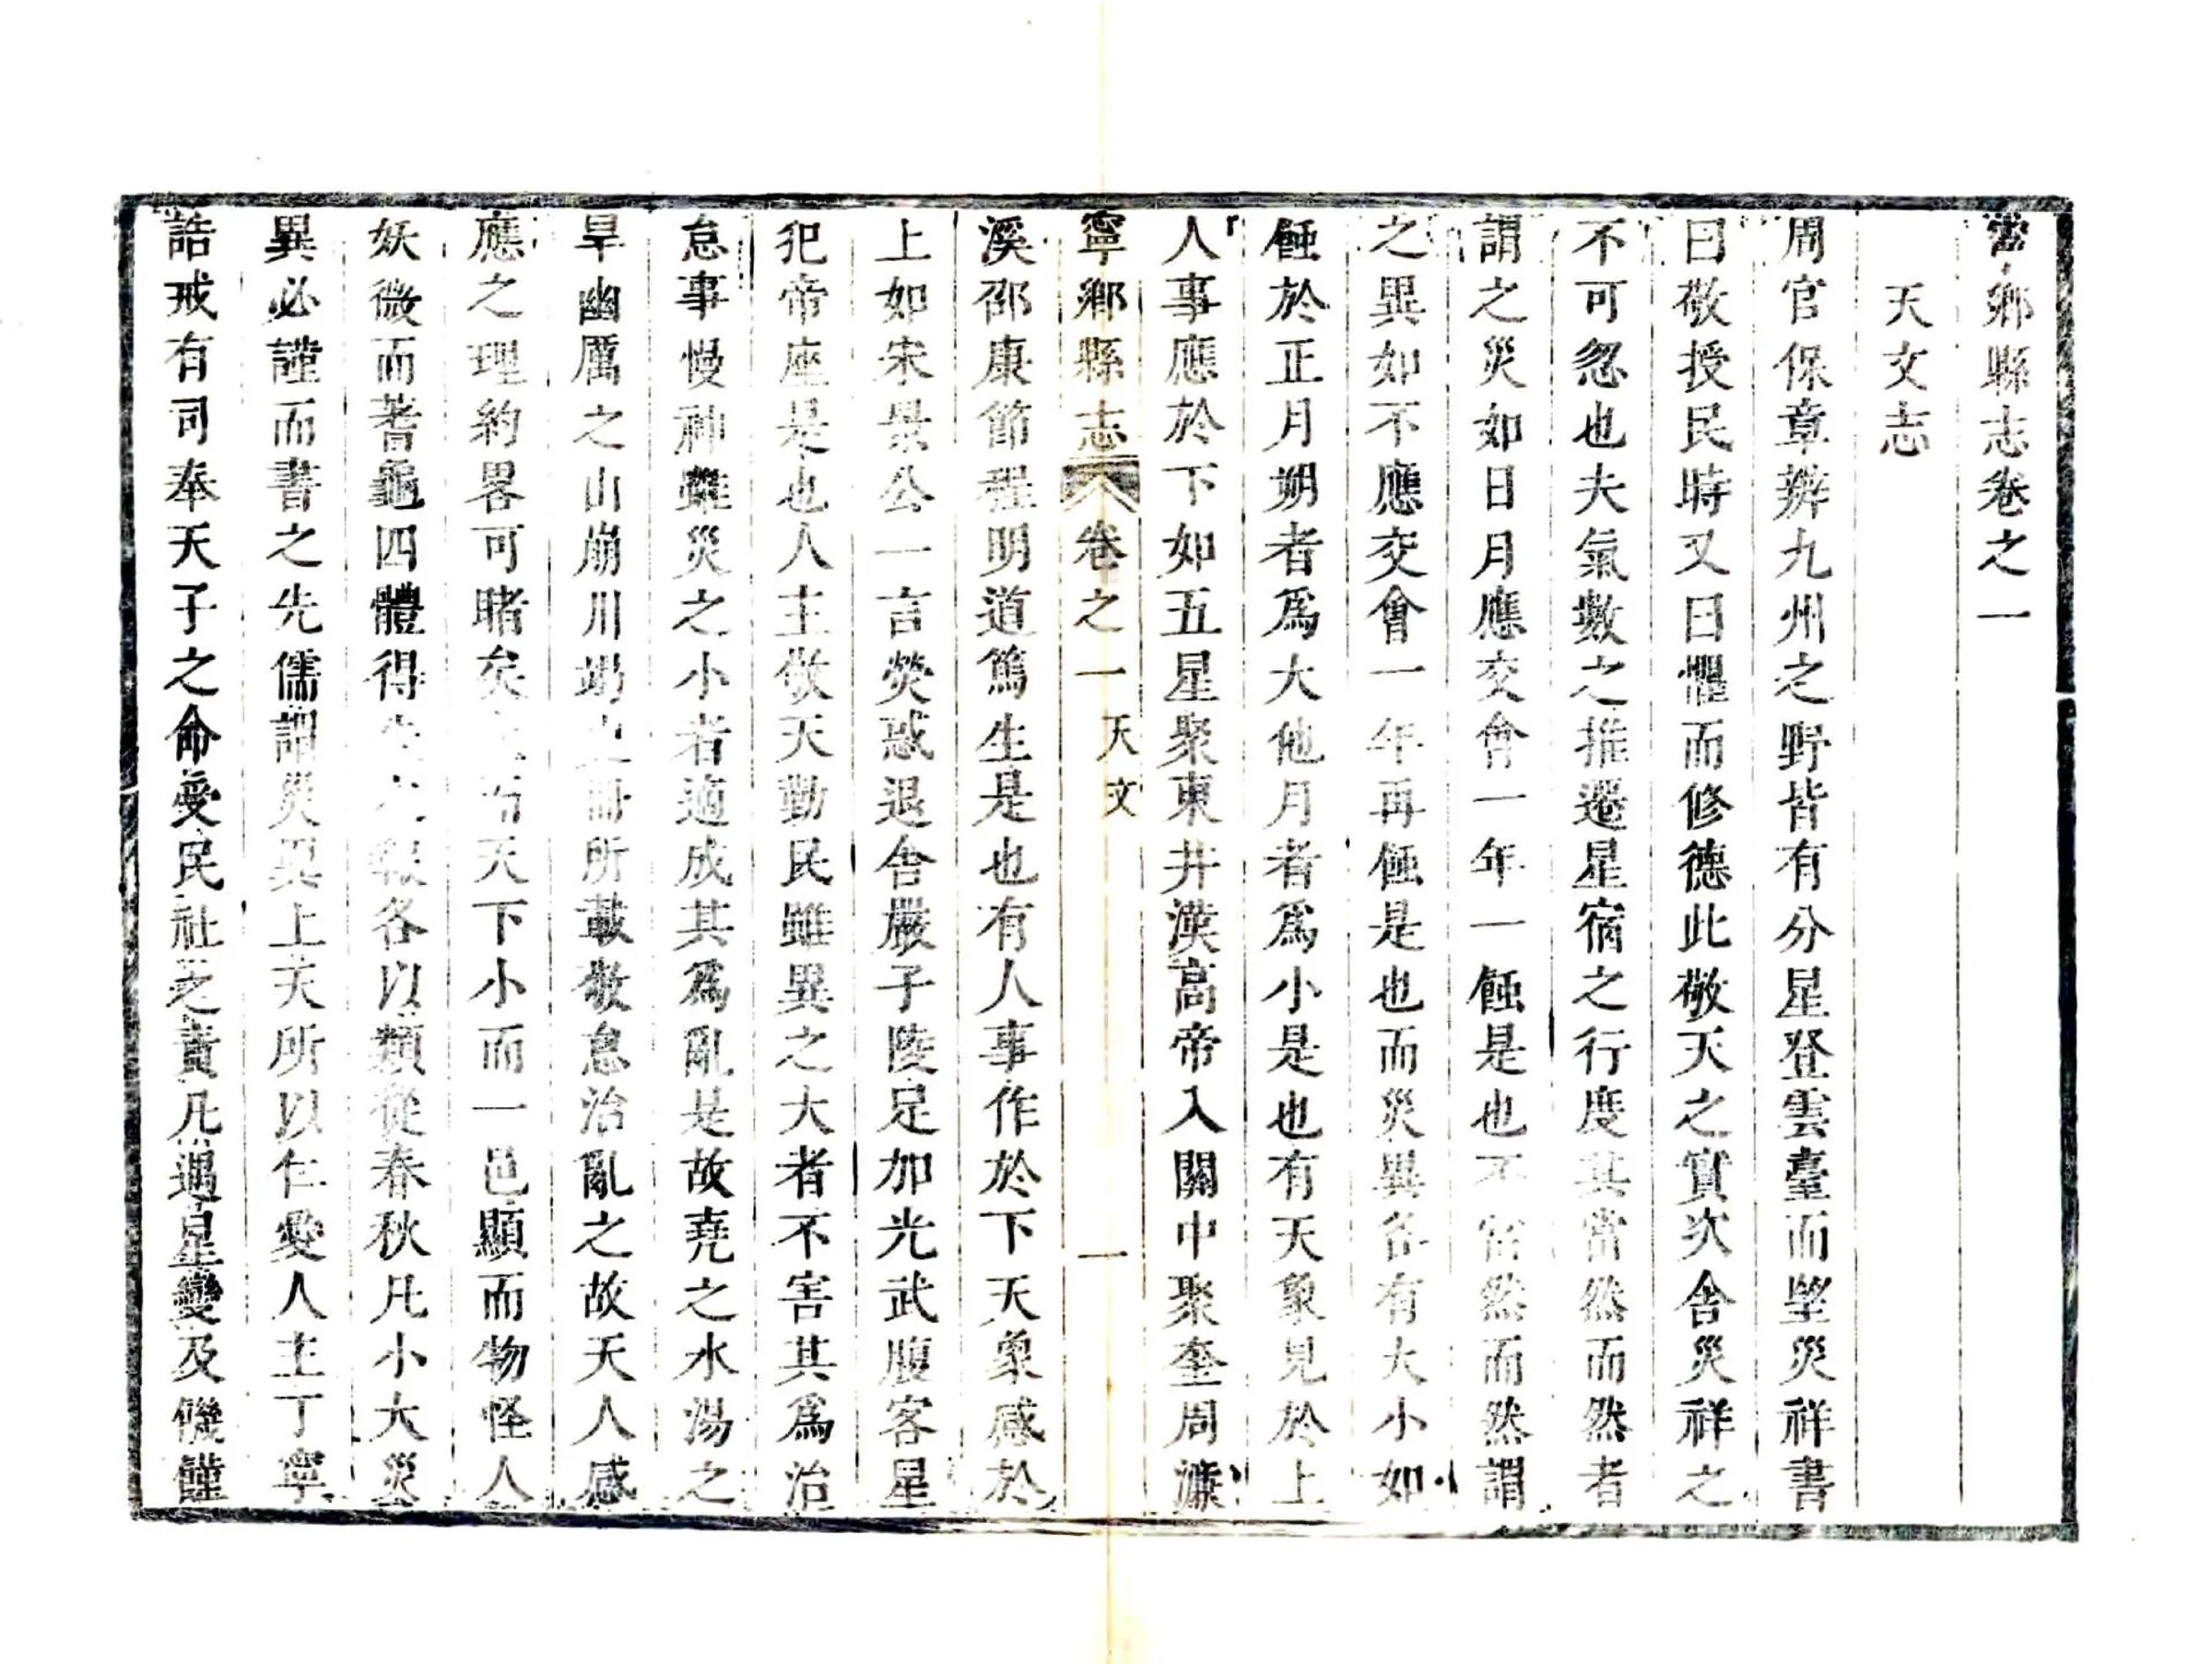 寧鄉縣志卷之一
天文志
周官保章辨九州之野皆有分星登雲臺而望災祥書
曰敬授民時又曰懼而修德此敬天之實次舍災祥之
不可忽也夫氣數之推遷星宿之行度其當然而然者
謂之災如日月應交會一年一蝕是也不當然而然謂
之異如不應交會一年再蝕是也而災異各有大小如
蝕於正月朔者爲大他月者爲小是也有天象見於上
人事應於下如五星聚東井漢高帝入關中聚奎周濂
寧鄉縣志 卷之一 天文 一
溪邵康節程明道篤生是也有人事作於下天象感於
上如宋景公一言熒惑退舍嚴子陵足加光武腹客星
犯帝座是也人主敬天勤民雖異之大者不害其爲治
怠事慢神雖災之小者適成其爲亂是故堯之水湯之
旱幽厲之山崩川竭 所載敬怠治亂之故天人感
應之理約畧可睹矣 天下小而一邑顯而物怪人
妖微而蓍龜四體得 各以類從春秋凡小大災
異必謹而書之先儒謂災異上天所以仁愛人主丁寧
誥戒有司奉天子之命受民社之責凡遇星變及饑饉